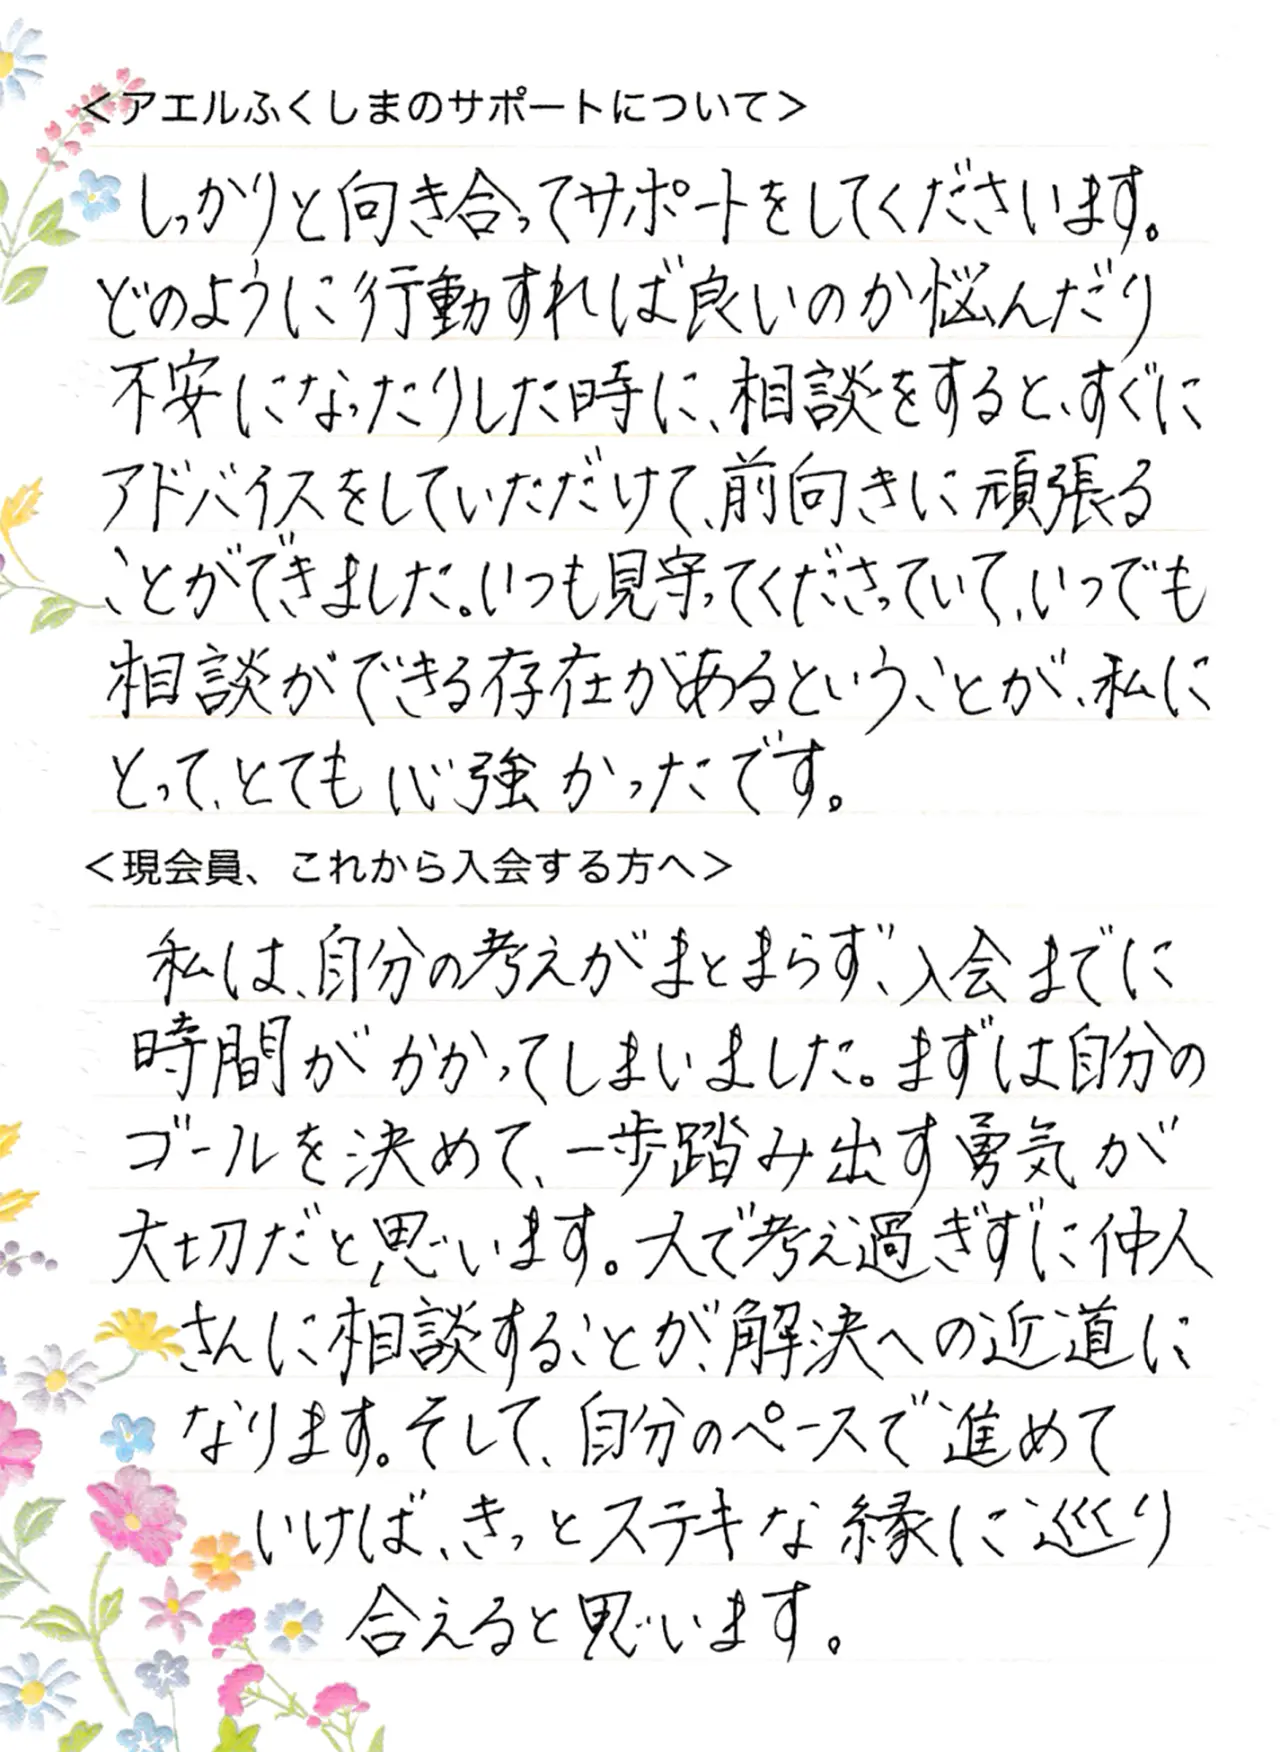 ＜アエルふくしまのサポートについて＞
しっかりと向き合ってサポートをしてくださいます。
どのように行動すれば良いのか悩んだり
不安になったりした時に、相談をすると、すぐに
アドバイスをしていただけて、前向きに頑張る
ことができました。いつも見守ってくださっていて、いつでも
相談ができる存在があるということが、私に
とって、とても心強かったです。
＜現会員、これから入会する方へ＞
私は、自分の考えがまとまらず、入会までに
時間がかかってしまいました。まずは自分の
ゴールを決めて、一歩踏み出す勇気が
大切だと思います。一人で考え過ぎずに仲人
さんに相談することが、解決への近道に
なります。そして、自分のペースで進めて
いけば、きっとステキな縁に巡り
合えると思います。